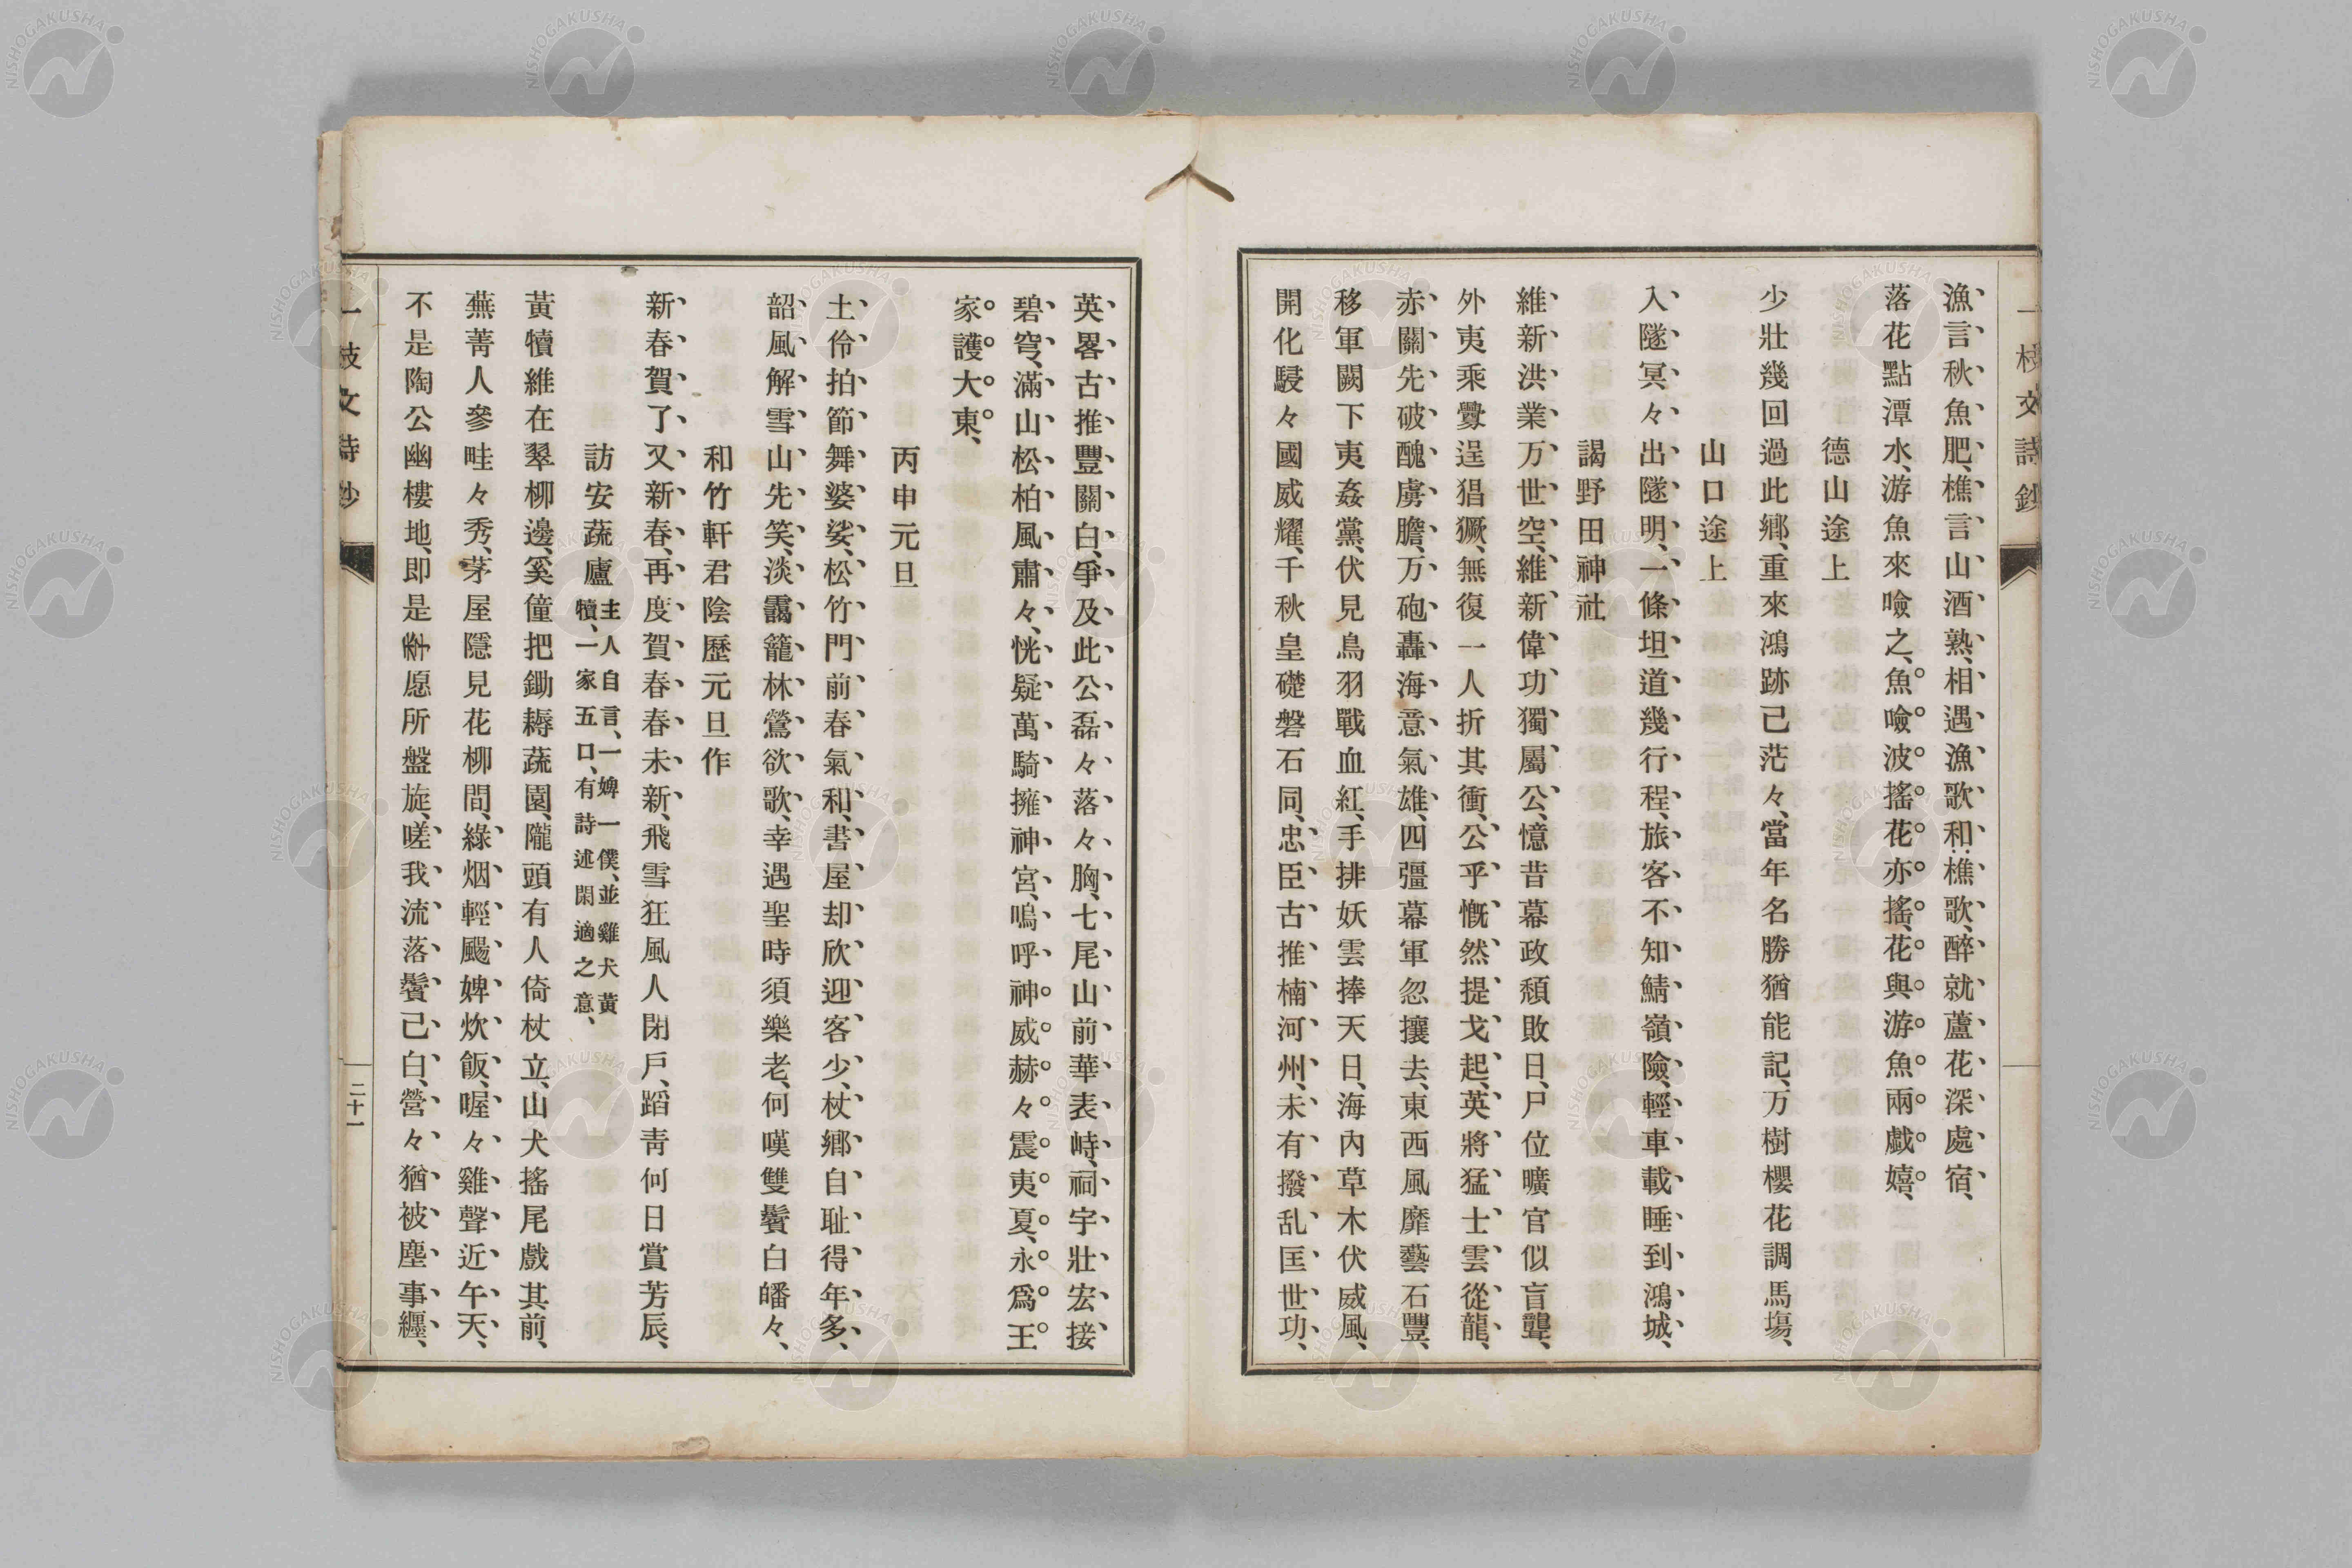 一枝文詩鈔
漁言秋魚肥、樵言山酒熟、相遇漁歌和樵歌、醉就蘆花深處宿、
落花點潭水、游魚來噞之、魚噞波搖花亦搖、花與游魚兩戲嬉、
德山途上
少壯幾回過此鄉、重來鴻跡已茫々、當年名勝猶能記、万樹櫻花調馬塲、
山口途上
入隧冥々出隧明、一條坦道幾行程、旅客不知鯖嶺險、輕車載睡到鴻城、
謁野田神社
維新洪業万世空、維新偉功獨屬公、憶昔幕政頹敗日、尸位曠官似盲聾、
外夷乘釁逞猖獗、無復一人折其衝、公乎慨然提戈起、英將猛士雲從龍、
赤關先破醜虜膽、万砲轟海意氣雄、四彊幕軍忽攘去、東西風靡藝石豐、
移軍闕下夷姦黨、伏見鳥羽戰血紅、手排妖雲捧天日、海內草木伏威風、
開化駸々國威耀、千秋皇礎磐石同、忠臣古推楠河州、未有撥乱匡世功、
英畧古推豐關白、爭及此公磊々落々胸、七尾山前華表峙、祠宇壯宏接
碧穹、滿山松柏風肅々、恍疑萬騎擁神宮、嗚呼神威赫々震夷夏、永爲王
家護大東、
丙申元旦
土伶拍節舞婆娑、松竹門前春氣和、書屋却欣迎客少、杖鄉自耻得年多、
韶風解雪山先笑、淡靄籠林鶯欲歌、幸遇聖時須樂老、何嘆雙鬢白皤々、
和竹軒君陰歷元旦作
新春賀了又新春、再度賀春春未新、飛雪狂風人閉戶、蹈靑何日賞芳辰、
訪安蔬廬 主人自言、一婢一僕、並雞犬黃犢、一家五口、有詩述閑適之意、
黃犢維在翠柳邊、奚僮把鋤耨蔬園、隴頭有人倚杖立、山犬搖尾戲其前、
蕪菁人參畦々秀、茅屋隱見花柳間、綠烟輕颺婢炊飯、喔々雞聲近午天、
不是陶公幽棲地、即是李愿所盤旋、嗟我流落鬢已白、營々猶被塵事纒、
一枝文詩鈔
二十一